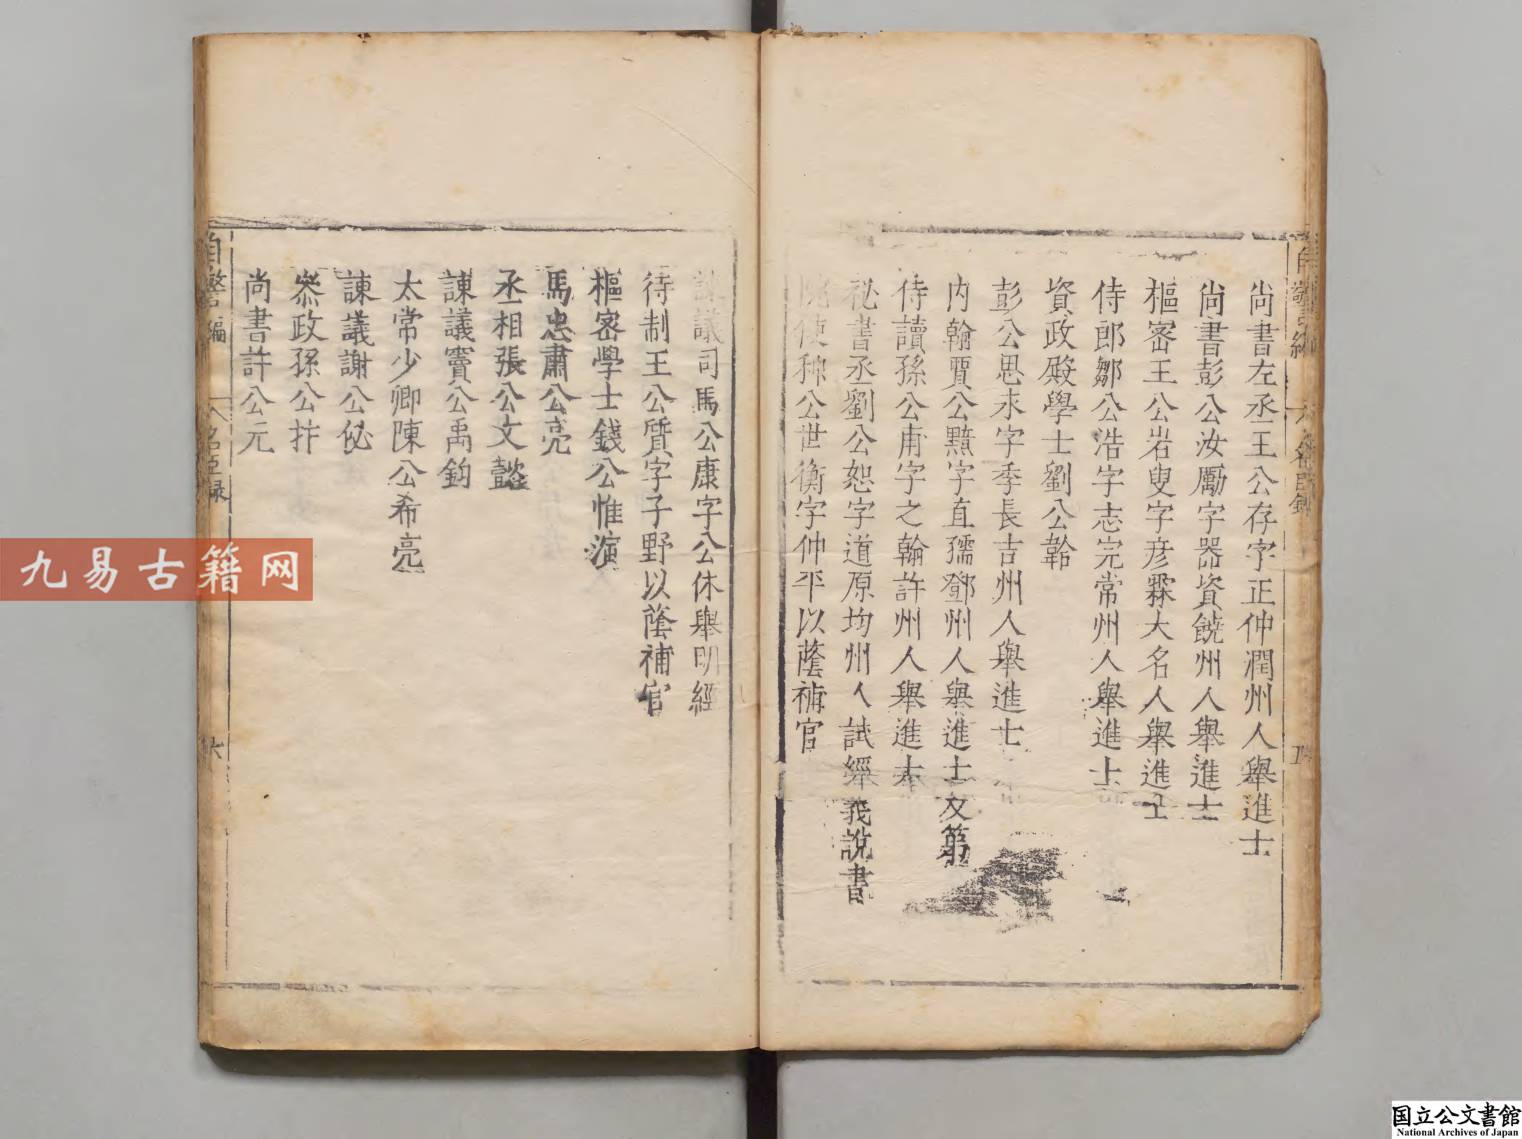 尚書左丞王公存字正仲潤州人舉進士
尚書彭公汝勵字器資饒州人舉進士
樞密王公岩叟字彦霖大名人舉進士
侍郎鄒公浩字志完常州人舉進士
資政殿學士劉公韐
彭公思永字季長吉州人舉進士
内翰賈公黯字直孺鄧州人舉進士及第
侍讀孫公甫字之翰許州人舉進士
秘書丞劉公恕字道原均州人試經義說書
院使种公世衡字仲平以蔭補官
諫議司馬公康字公休舉明經
待制王公質字子野以蔭補官
樞密學士錢公惟演
馬忠肅公亮
丞相張公文懿
諫議竇公禹鈞
太常少卿陳公希亮
諫議謝公泌
叅政孫公抃
尚書許公元
自警編
名臣録
六
九易古籍网
国立公文書館
National Archives of Japan